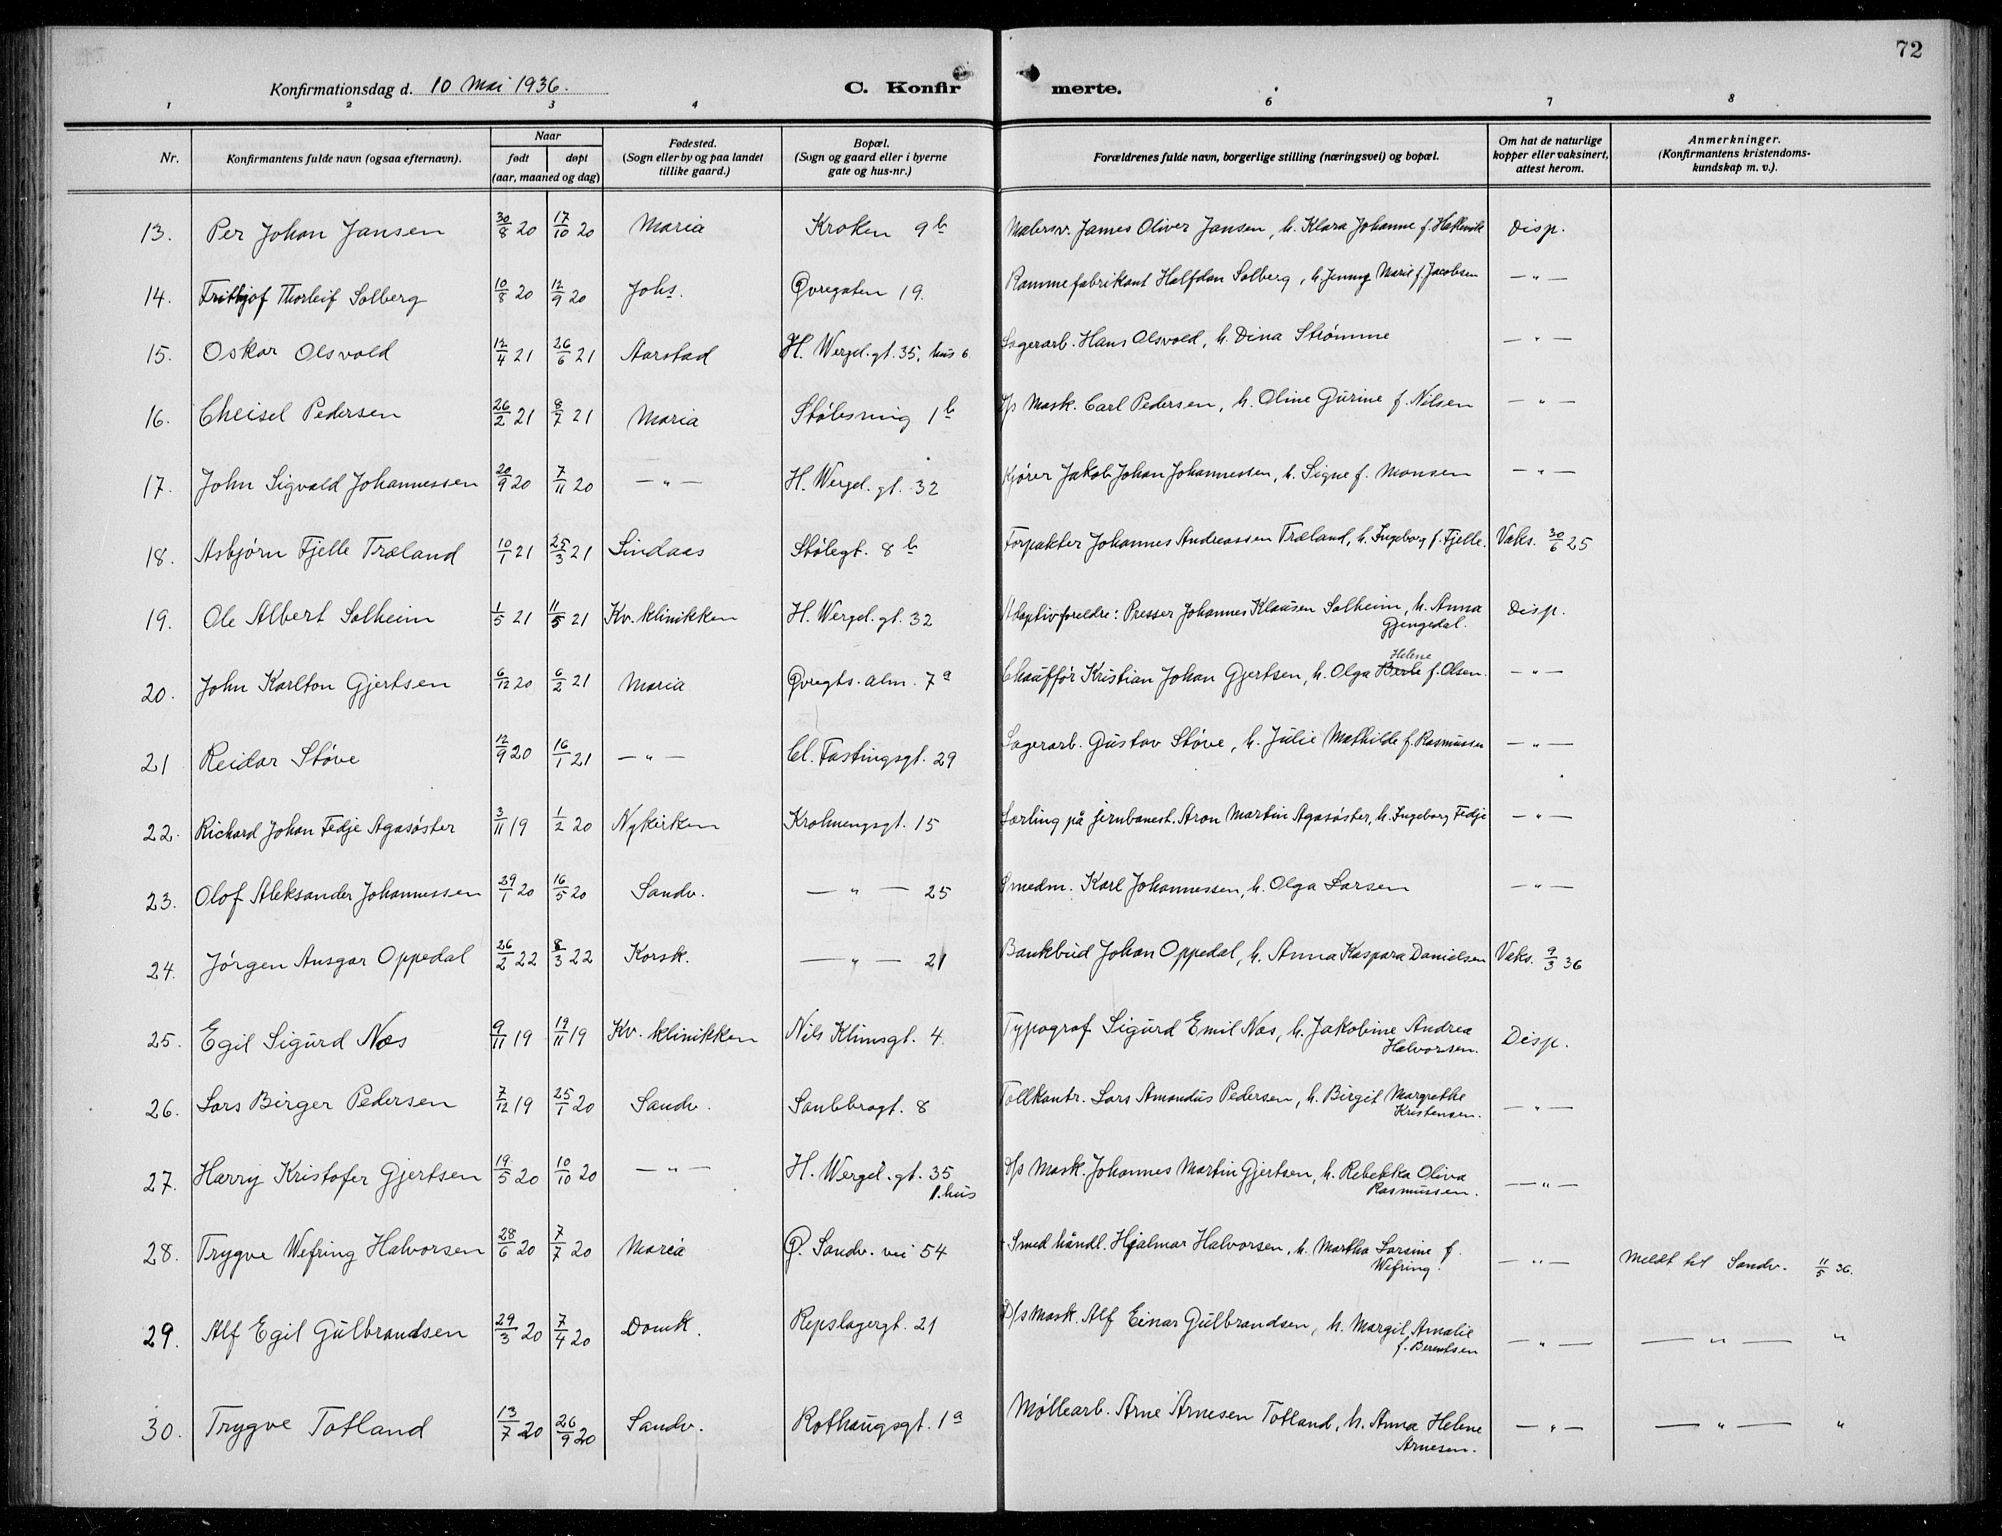 72
Konfirmationsdag d. 10 Mai 1936.
C. Konfirmerte.
1 2 3 4 5 6 7 8
Nr. | Konfirmantens fulde navn (ogsaa efternavn). | Naar født døpt (aar, maaned og dag) | Fødested. (Sogn eller by og paa landet tillike gaard.) | Bopæl. (Sogn og gaard eller i byerne gate og hus-nr.) | Forældrenes fulde navn, borgerlige stilling (næringsvei) og bopæl. | Om hat de naturlige kopper eller vaksinert, attest herom. | Anmerkninger. (Konfirmantens kristendomskundskap m. v.).
13. Per Johan Jansen 30/8 20 17/10 20 Maria Kroken 9b Malersv. James Oliver Jansen, h. Klara Johanne f. Disp.
14. Frithjof Thorleif Solberg 10/8 20 12/9 20 Johs. Øvregaten 19. Rammefabrikant Halfdan Solberg, h. Jenny Marie f. Jacobsen — " —
15. Oskar Olsvold 12/4 21 26/6 21 Aarstad H. Wergel. gt. 35, hus 6 Lagerarb. Hans Olsvold, h. Dina Strømme — " —
16. Cheisel Pedersen 26/2 21 8/7 21 Maria Stølesmug 1b D/s Mask. Carl Pedersen, h. Oline Gurine f. Nilsen — " —
17. John Sigvald Johannessen 20/9 20 7/11 20 — " — H. Wergel. gt. 32 Kjører Jakob Johan Johannessen, h. Signe f. Monsen — " —
18. Asbjørn Fjelle Træland 10/1 21 25/3 21 Lindaas Stølegt. 8b Forpakter Johannes Andreassen Træland, h. Ingeborg f. Fjelle. Vaks. 30/6 25
19. Ole Albert Solheim 1/5 21 11/5 21 Kv. klinikken H. Wergel. gt. 32 Adoptivforeldre: Presser Johannes Klausen Solheim, h. Anna Gjengedal. Disp.
20. John Karlton Gjertsen 6/12 20 6/2 21 Maria Øvregts. alm. 7a Chauffør Kristian Johan Gjertsen, h. Olga Helene f. Olsen. — " —
21 Reidar Støve 12/9 20 16/1 21 — " — Cl. Fastingsgt. 29 Lagerarb. Gustav Støve, h. Julie Mathilde f. Rasmussen — " —
22. Richard Johan Fedje Agasøster 3/11 19 1/2 20 Nykirken Krohnengsgt. 15 Lærling på jernbanest. Aron Martin Agasøster, h. Ingeborg Fedje — " —
23. Olof Aleksander Johannessen 29/1 20 16/5 20 Sandv. — " — 25 Smedm. Karl Johannessen, h. Olga Larsen — " —
24. Jørgen Ansgar Oppedal 26/2 22 8/3 22 Korsk. — " — 21 Bankbud Johan Oppedal, h. Anna Kaspara Danielsen Vaks. 9/3 36
25. Egil Sigurd Næs 9/11 19 19/11 19 Kv. klinikken Nils Klimsgt. 4. Typograf Sigurd Emil Næs, h. Jakobine Andrea Halvorsen. Disp.
26. Lars Birger Pedersen 7/12 19 25/1 20 Sandv. Sandbrogt. 8 Tollkontr. Lars Amandus Pedersen, h. Birgit Margrethe Kristensen. — " —
27. Harry Kristofer Gjertsen 19/5 20 10/10 20 — " — H. Wergel. gt. 35 1. hus D/s Mask. Johannes Martin Gjertsen, h. Rebekka Oliva Rasmussen. — " —
28. Trygve Wefring Halvorsen 28/6 20 7/7 20 Maria Ø. Sandv. vei 54 † Smed håndl. Hjalmar Halvorsen, h. Martha Larsine f. Wefring. — " — Meldt til Sandv. 11/5 36.
29. Alf Egil Gulbrandsen 29/3 20 7/4 20 Domk. Repslagergt. 21 D/s Mask. Alf Einar Gulbrandsen, h. Margit Amalie f. Berentsen — " — — " — "
30. Trygve Totland 13/7 20 26/9 20 Sandv. Rothaugsgt. 1a Møllearb. Arne Arnesen Totland, h. Anna Helene Arnesen. — " — — " — "